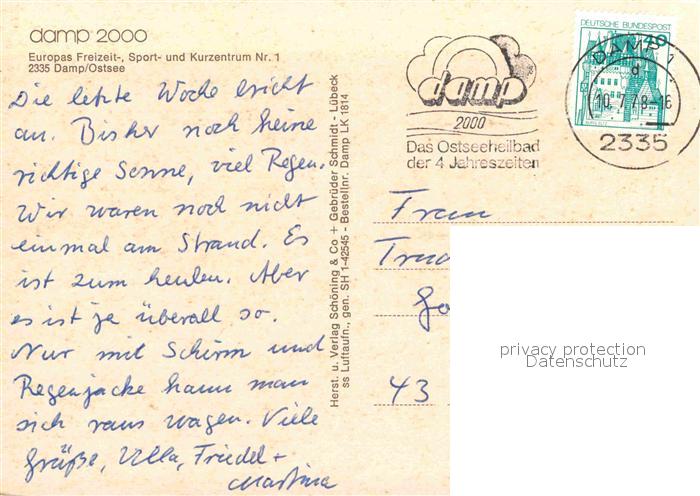 damp 2000
Europas Freizeit-, Sport- und Kurzentrum Nr. 1
2335 Damp/Ostsee
Die letzte Woche bricht
an. Bisher noch keine
richtige Sonne, viel Regen.
Wir waren noch nicht
einmal am Strand. Es
ist zum heulen. Aber
es ist ja überall so.
Nur mit Schirm und
Regenjacke kann man
sich raus wagen. Viele
Grüße, Ulla, Friedel +
Martina
Herst. u. Verlag Schöning & Co + Gebrüder Schmidt - Lübeck
ss Luftaufn., gen. SH 1-42545 - Bestellnr. Damp LK 1814
damp
2000
Das Ostseeheilbad
der 4 Jahreszeiten
DEUTSCHE BUNDESPOST
40
DAMP 1
d
10.7.78-16
2335
Frau
43
privacy protection
Datenschutz